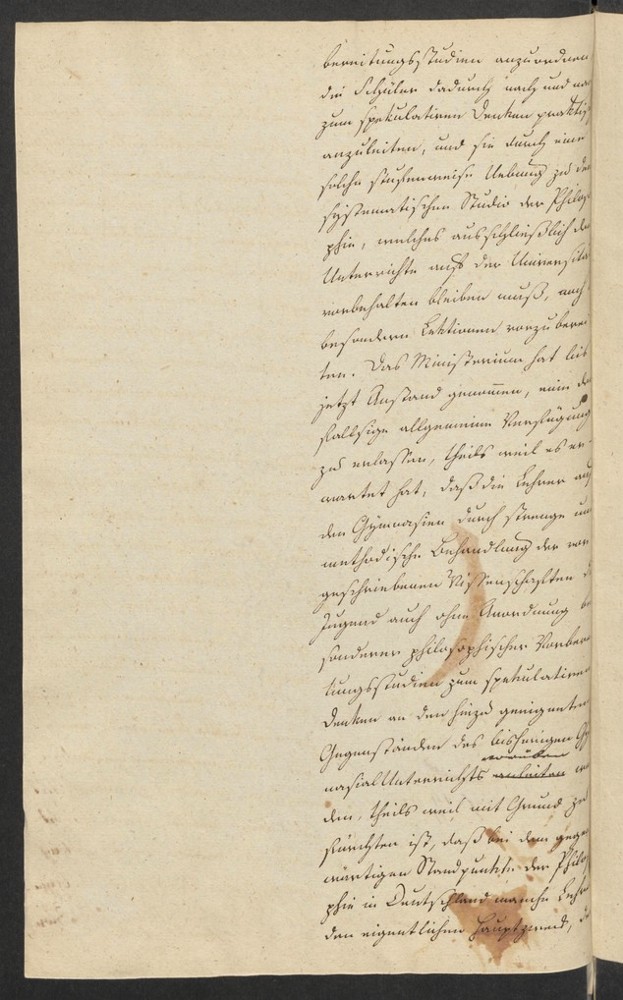 bereitungsstudien anzuordnen
die Schüler dadurch nach und na
zum spekulativen Denken praktis
anzuleiten, und sie durch eine
solche stufenweise Uebung zu de
systematischen Studio der Philos
phie, welches ausschließlich de
Unterrichte auf der Universitä
vorbehalten bleiben muß, nach
besondern Lektionen vorzuberei
ten. Das Ministerium hat bis
jetzt Anstand genom̅en, eine de
fallsige allgemeine Verfügung
zu erlassen, theils weil es er-
wartet hat, daß die Lehrer auf
den Gymnasien durch strenge un
methodische Behandlung der vor
geschriebenen Wissenschaften d
Jugend auch ohne Anordnung be
sonderer philosophischer Vorberei
tungsstudien zum spekulativen
Denken an den hiezu geeigneten
Gegenständen des bisherigen Gy
nasial Unterrichts anleiten we
den, theils weil mit Grund zu
fürchten ist, daß bei dem gegen
wärtigen Standpunkte der Philo
phie in Deutschland manche Lehr
den eigentlichen Hauptzweck, d